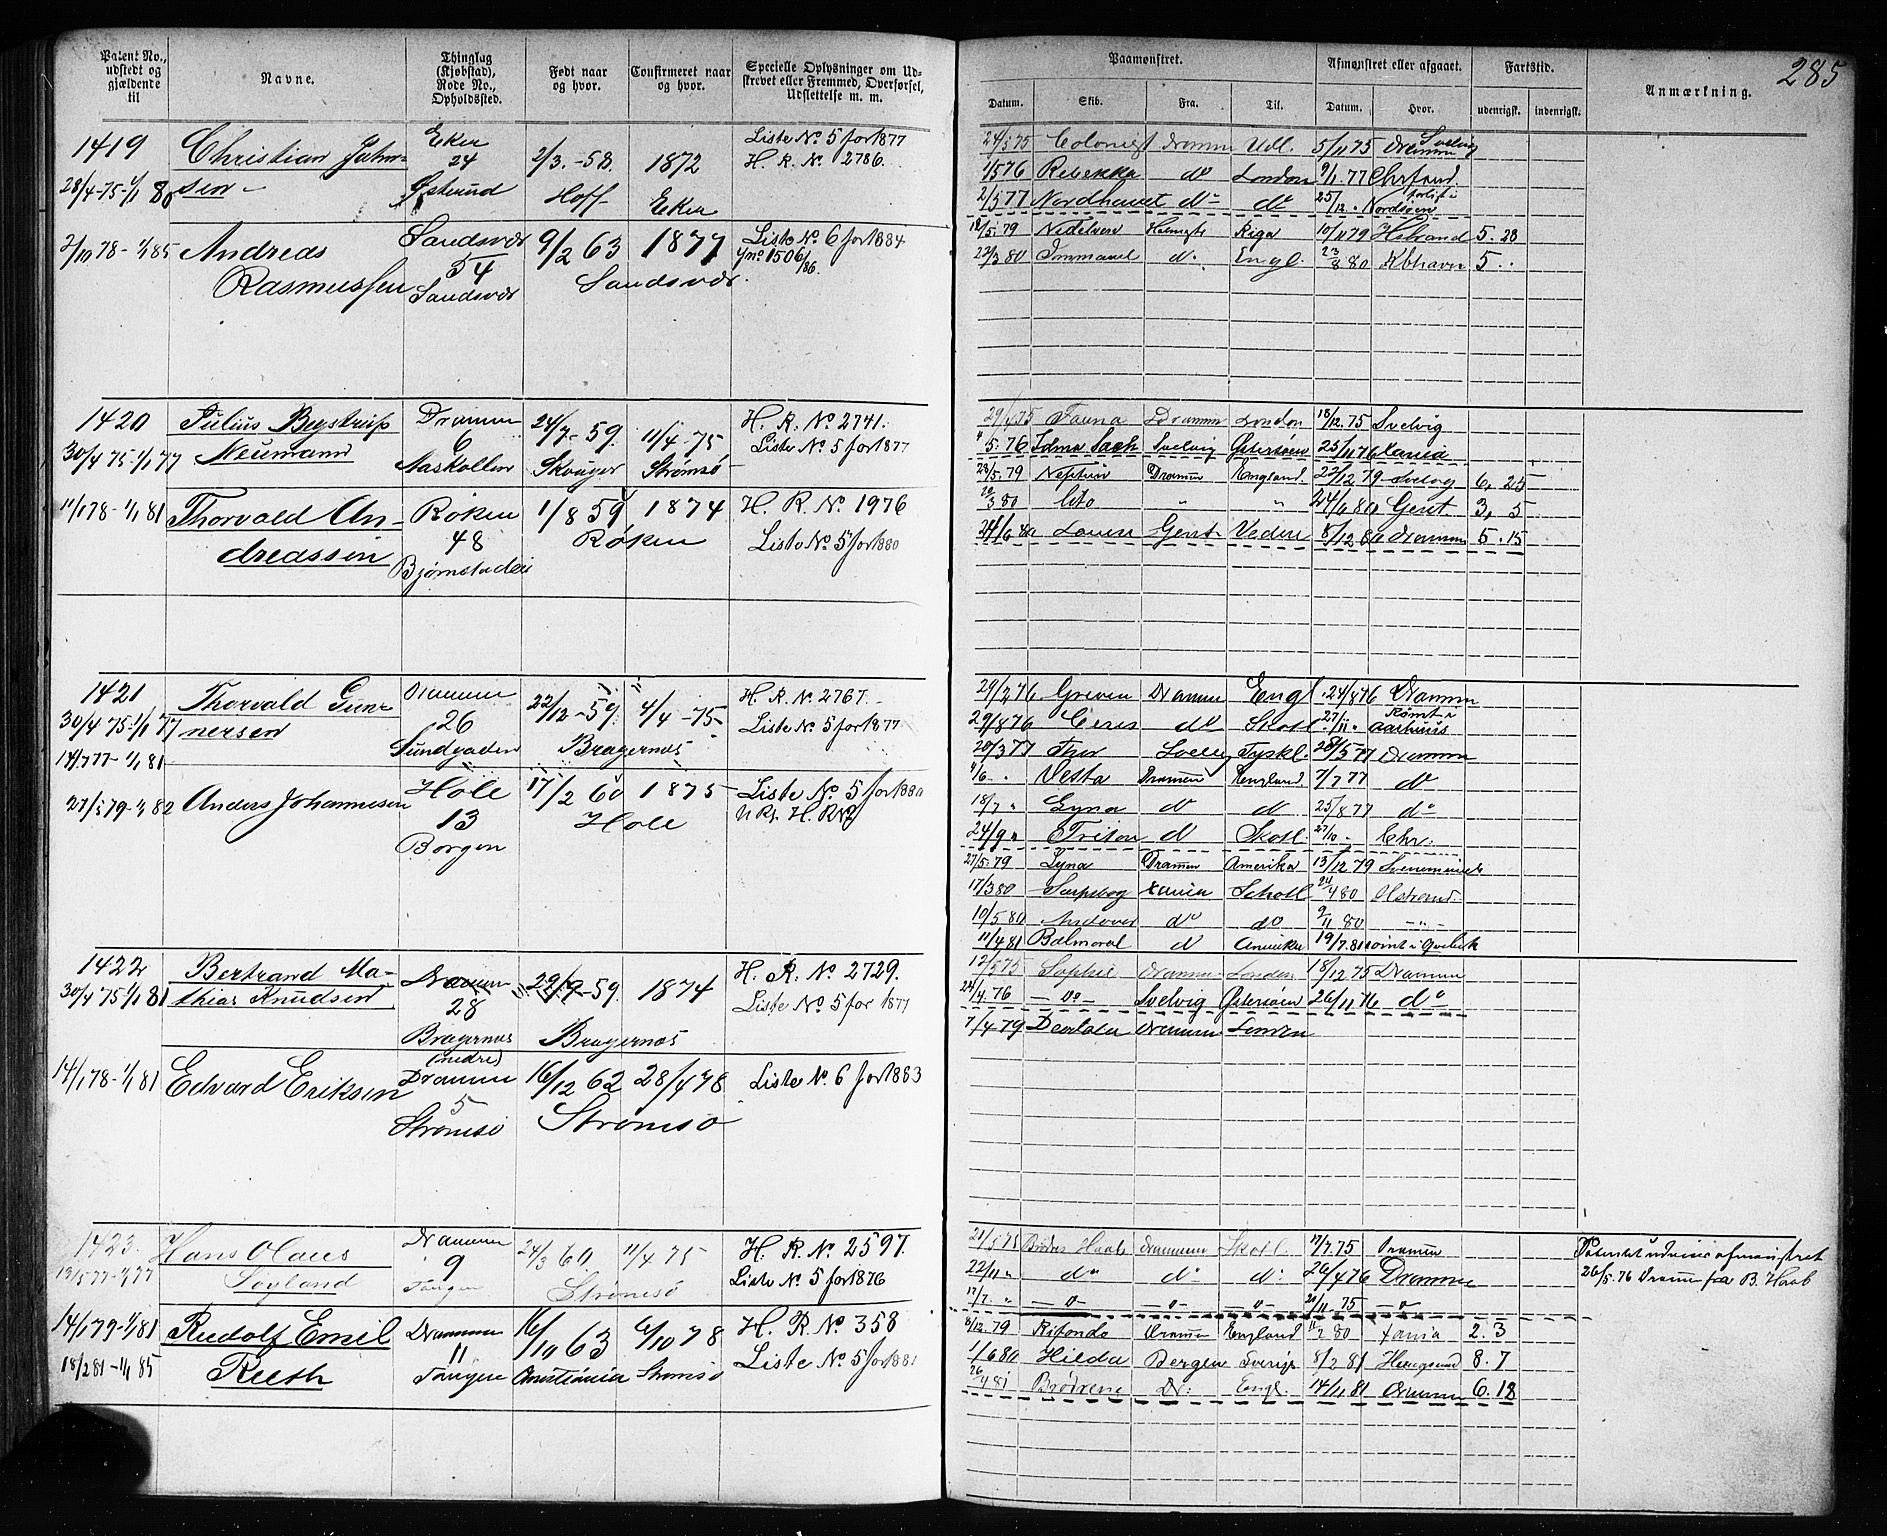 285
Patent No., udstedt og gjældende til
Navne.
Thinglag (Kjøbstad), Rode No., Opholdssted.
Født naar og hvor.
Confirmeret naar og hvor.
Specielle Oplysninger om Udskrevet eller Fremmed, Overførsel, Udslettelse m. m.
Paamønstret.
Afmønstret eller afgaaet.
Fartstid.
Anmærkning.
Datum. Skib. Fra. Til. Datum. Hvor. udenrigsk. indenrigsk.
1419 Christian Jahn- Eker 2/3.-58. 1872 Liste No 5 for 1877
28/4-75-1/1 80 sen 24 Hoff Eker H. R. No 2786.
2/10 78-1/1 85 Andreas Sandsvær 9/2 63 1877 Liste No 6 for 1884
Rasmussen 54 Sandsvær.
Sandsvær
24/5 75 Colonist Dramn Udl. 5/11 75 Dramn Svelvig
Rebekka do London 9/1.77 Chrsand.
2/5 77 Nordhavet do do 25/12 " forlist i Nordsøen
18/5.79 Nidelven Holmest Riga 10/11 79 Hstrand 5.28
22/3 80 Immanuel do. Engl. 23/8 80 Kbhavn 5..
1420 Julius Bystrup Drammen 24/7-59. 11/4-75 H. R. No 2741.
30/4 75-1/1 77 Neumann 6 Skouger Strømsø Liste No 5 for 1877
11/1 78-1/1 81 Thorvald An- Røken 1/8 59 1874 H. R. No 1976
dreassen 48 Røken Liste No 5 for 1880
29/4 75 Fauna Drammen London 18/12.75 Svelvig
5.76 Svelvig Østersøen 25/11 76 Xania
28/5.79 Neptun Drammen England 22/12 79 Svelvig 6, 25
20/3 80 Cito " " 24/6 80 Gent 3, 5
24/6 80 Gent 8/12 80 Drammen 5.15
1421 Thorvald Gun- Drammen 22/12-59. 4/4-75- H. R. No 2767.
30/4 75-1/1 77 nersen 26 Bragernæs Liste No 5 for 1877
14/7 77-1/1 81 Sundgaden
27/5 79-1/1 82 Anders Johannesen Hole 17/2 60 1875 Liste No 5 for 1880
13 Hole
Borgen
29/2 76 Greven Drammen Engl. 24/8 76 Drammen
29/8 76 Ceres do Skotl. 27/11 " Rømt i Aarhuus
20/3 77 Thor Tyskl. 28/5 77 Drammen
4/6 " Vesta Drammen England 7/7 77 do
18/7 " Lyna do do 25/8 77 do
24/9 " Triton do Skotl. 27/10 - Chr.
27/5.79 Lyna Drammen Amerika 13/12 79
17/3 80 Sarpsborg Xania Schotl 24/4 80
10/5 80 Andover do do 9/11 80 " -
11/4 81 Balmoral do Amerika 19/7.81 rømt i Quebek
1422 Bertrand Ma- Drammen 29/9-59. 1874 H. R. No 2729.
30/4 75 1/1 81 thias Knudsen 28 Bragernæs Liste No 5 for 1877
Bragernæs
(nedre)
14/1 78-1/1 81 Edvard Eriksen Drammen 16/12 62 28/4 78 Liste No. 6 for 1883
5 Strømsø
Strømsø
12/5 75 Sophie Drammen London 18/12 75 Drammen
24/4.76 - do - Svelvig Østersøen 26/11 76 do
7/4.79 Drammen London
1423. Hans Olaus Drammen 24/3 60. 11/4 75 H. R. No 2597.
Soyland 9 Strømsø Liste No 5 for 1876
Tangen
14/1 79-1/1 81 Rudolf Emil Drammen 16/10 63 6/10 78 H. R. No 358
18/2 81-1/1 85 Reeth 11 Christiania Strømsø Liste No 5 for 1881
Tangen
21/5 75 Haab Drammen Skotl. 17/7.75 Drammen
22/11 " do do do 26/4 76 Drammen
17/7. " - o - - o - - o - 20/11.75 - o -
8/12.79 Drammen England 11/2 80 Xania 2.3
1/6 80 Hilda Bergen Sverige 8/2 81 Haugsund 8.7
26/4 81 Brødrene Dr: Engl. 14/11 81 Drammen 6.18
26/5.76 Drammen fra B. Haab